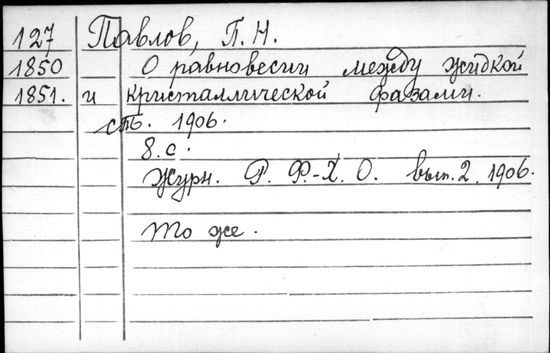 127 Павлов, П. Н.
1850 О равновесии между жидкой
1851. и кристаллической фазами.
спб. 1906.
8. с.
Журн. Р. Ф.-Х. О. вып. 2. 1906.
То же.